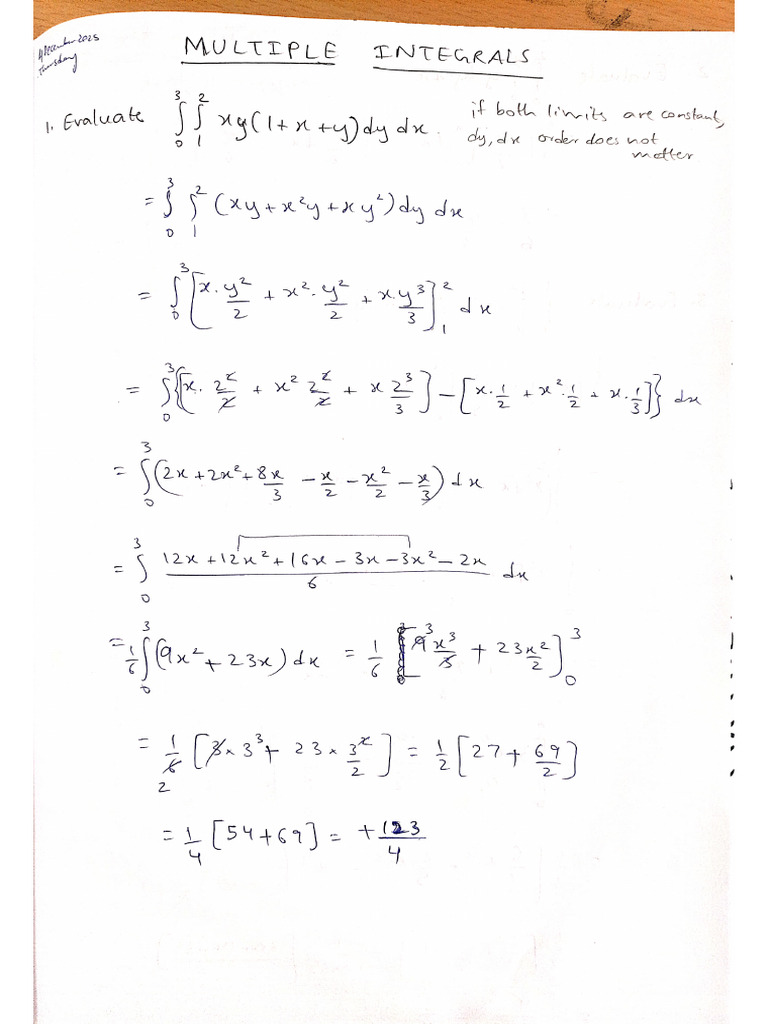 4 December 2025
Thursday
MULTIPLE INTEGRALS
1. Evaluate ∫₀³ ∫₁² xy(1+x+y)dy dx.
if both limits are constant,
dy, dx order does not
matter
= ∫₀³ ∫₁² (xy + x²y + xy²) dy dx
= ∫₀³ [x·y²/2 + x²·y²/2 + x·y³/3]₁² dx
= ∫₀³ {[x·2²/2 + x² 2²/2 + x 2³/3] − [x·1/2 + x²·1/2 + x·1/3]} dx
= ∫₀³ (2x + 2x² + 8x/3 − x/2 − x²/2 − x/3) dx
= ∫₀³ (12x + 12x² + 16x − 3x − 3x² − 2x)/6 dx
= 1/6 ∫₀³ (9x² + 23x) dx = 1/6 [9 3 x³/3 + 23x²/2]₀³
= 1/6 2 [3×3³ + 23×3²/2] = 1/2 [27 + 69/2]
= 1/4 [54 + 69] = +123/4